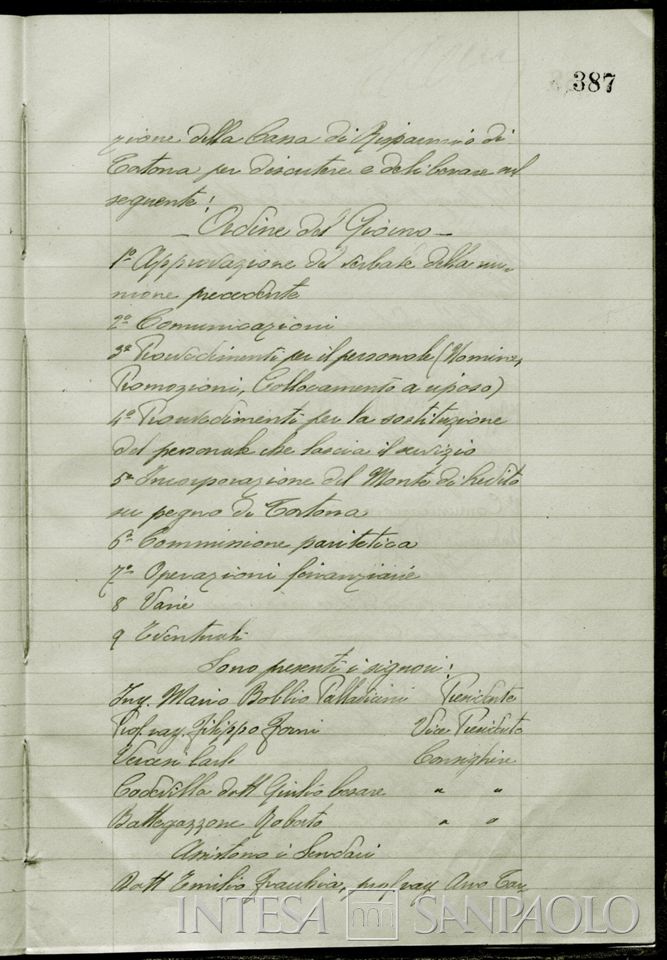 387
zione della Cassa di Risparmio di
Tortona per discutere e deliberare sul
seguente:
- Ordine del Giorno -
1º Approvazione del verbale della riu-
nione precedente
2º Comunicazioni
3º Provvedimenti per il personale (Nomine,
Promozioni, Collocamento a riposo)
4º Provvedimenti per la sostituzione
del personale che lascia il servizio
5º Incorporazione del Monte di Credito
su pegno di Tortona
6º Commissione paritetica
7º Operazioni finanziarie
8 Varie
9 Eventuali
Sono presenti i signori:
Ing. Mario Bobbio Pallavicini Presidente
Prof. rag. Filippo Vice Presidente
Vercesi Carlo Consigliere
Codevilla dott Giulio Cesare " "
Battegazzone Roberto " "
Assistono i Sindaci
Dott Emilio prof rag
INTESA SANPAOLO